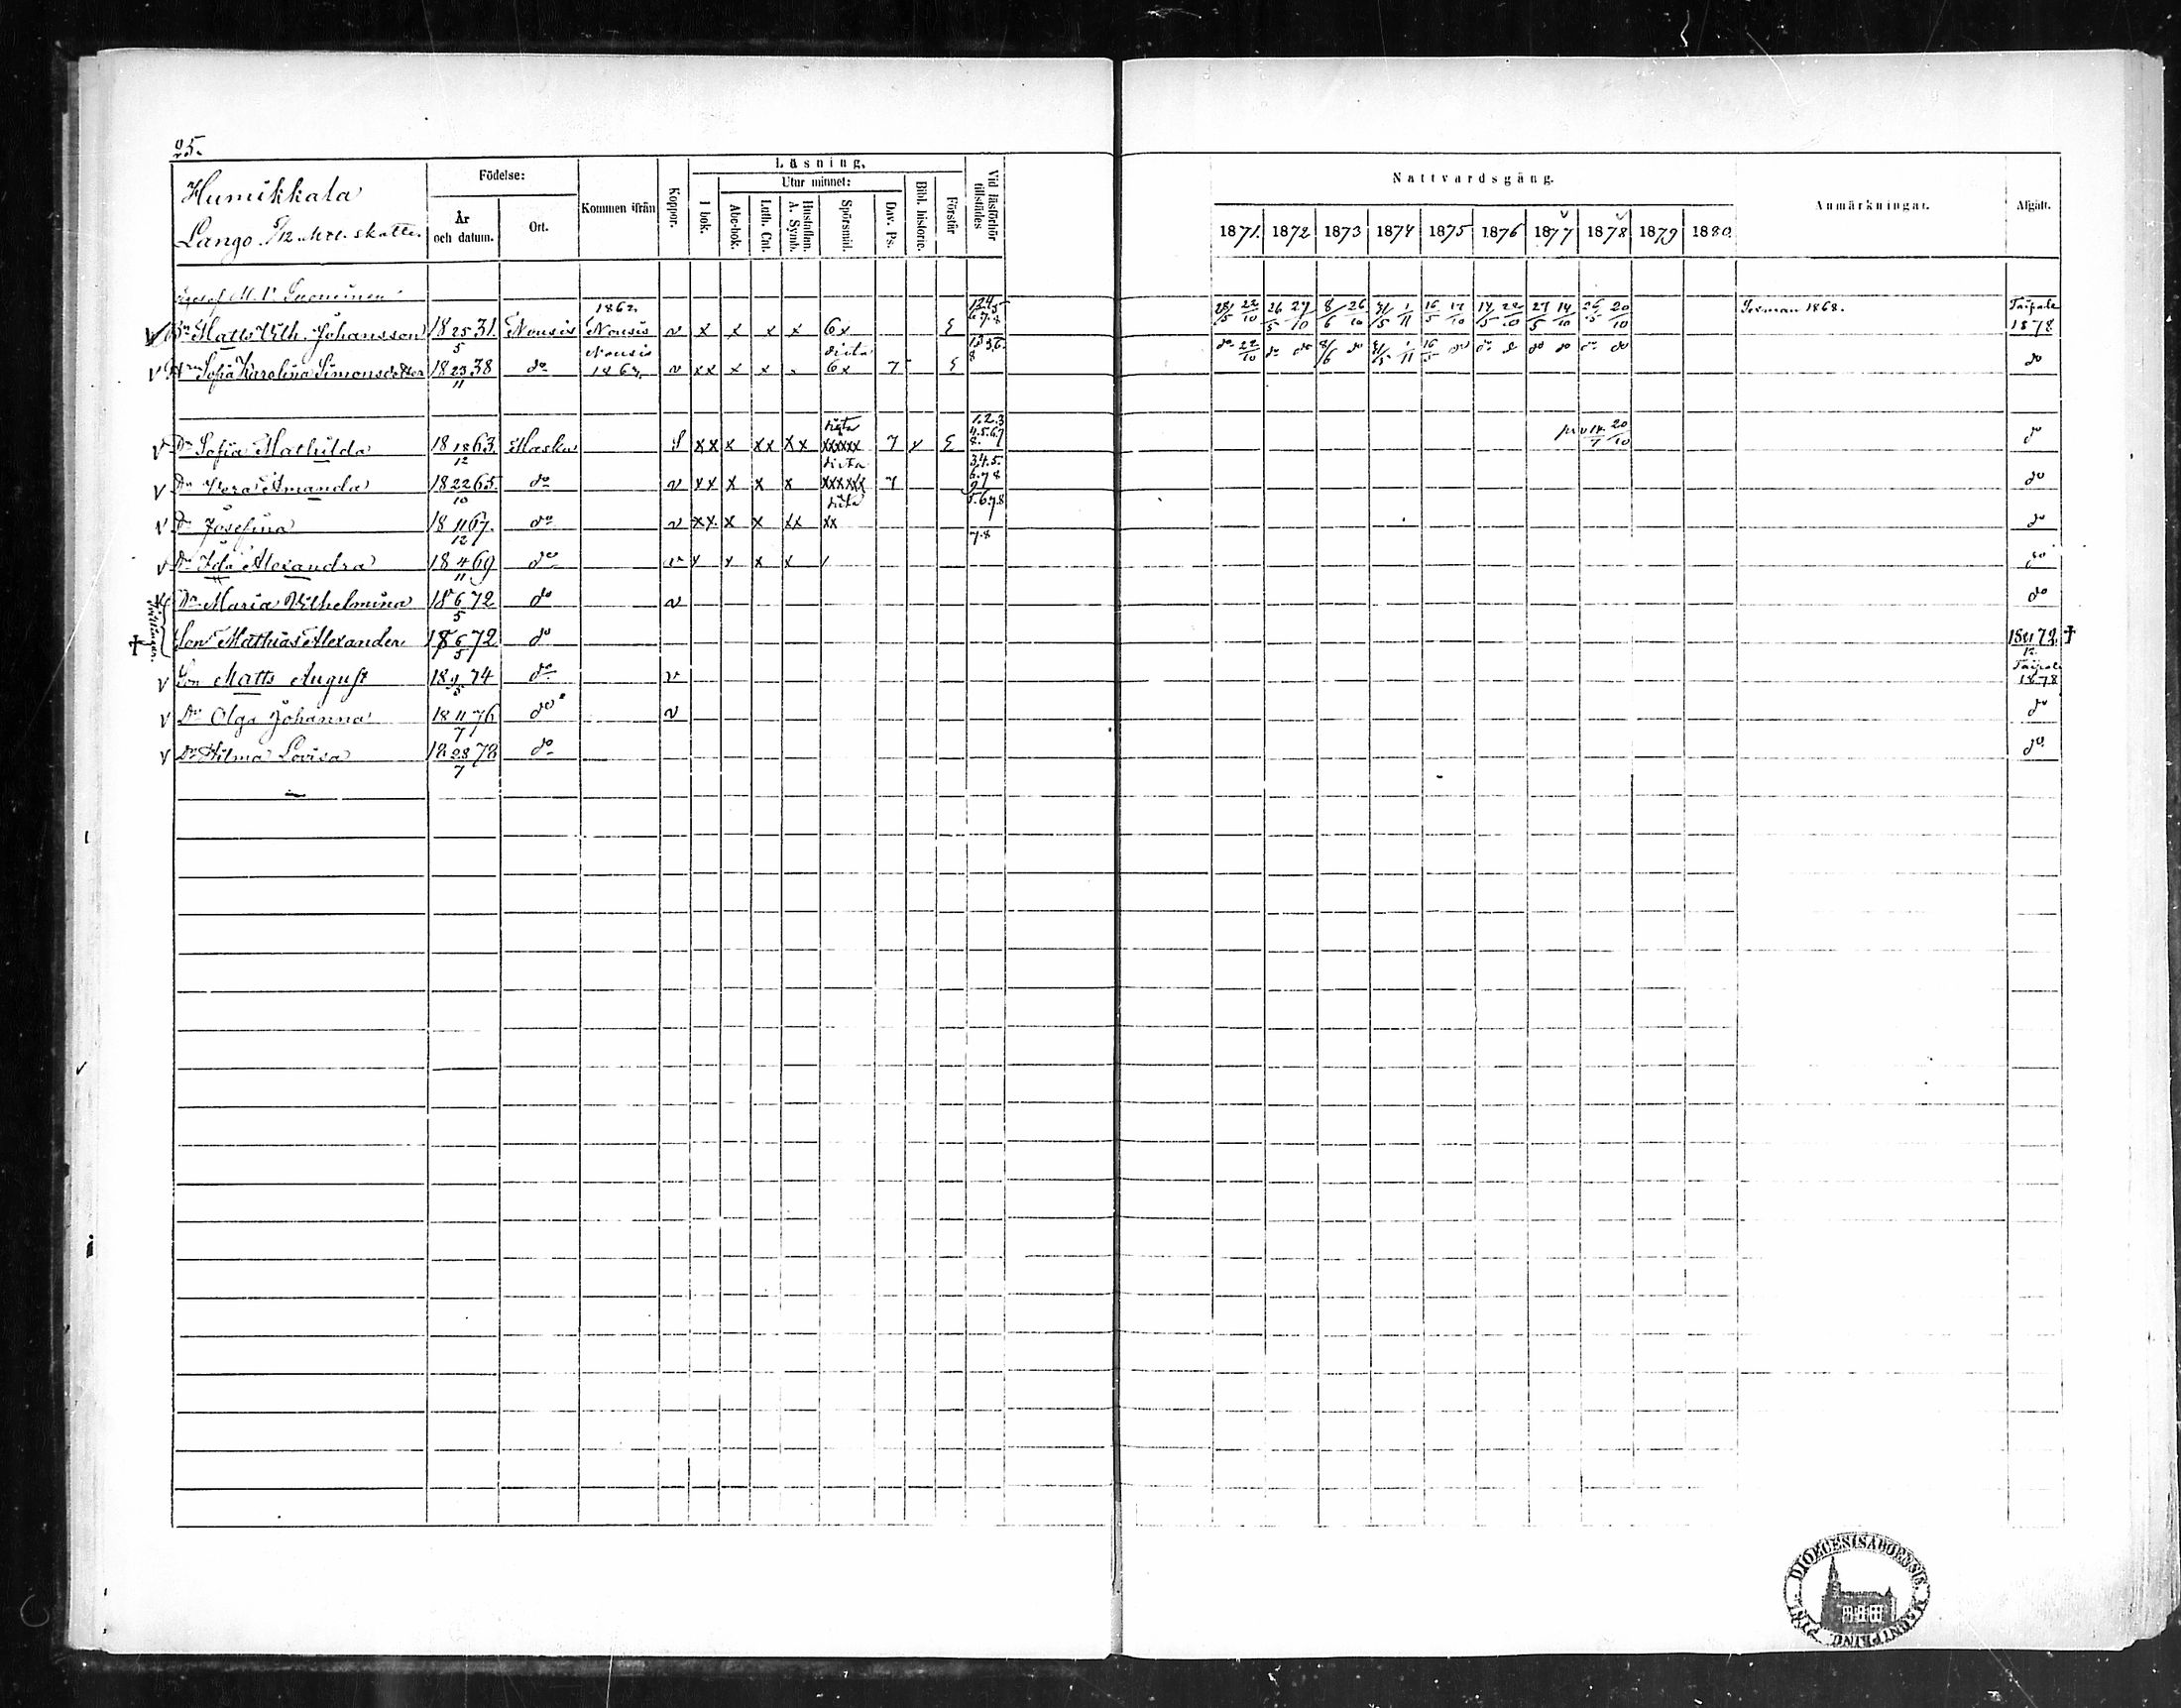 25.
Humikkala
Lango 5/12 mtl. skatte.
Födelse:
År och datum.
Ort.
Kommen ifrån
Koppor.
Läsning.
1 bok.
Utur minnet:
Abc-bok.
Luth. Cat.
Hustaflan. A. Symb.
Spörsmål.
Dav. Ps.
Bibl. historie.
Förstår
Vid läsförhör tillstädes
Nattvardsgång.
1871. 1872 1873 1874 1875 1876 1877 1878 1879 1880.
Anmärkningar.
Afgått.
Matts Vilh. Johansson 18 25/5 31. Nousis 1862. Nousis v x x x x 6x 28/5 22/10 26/5 27/10 8/6 26/10 31/5 1/11 16/5 17/10 14/5 22/10 27/5 14/10 20/10 1868. Taipale 1878
Sofia Karolina Simonsdotter 18 23/11 38 do Nousis v xx x x 6x 7 do 22/10 do do 8/6 do 31/5 1/11 16/5 do do do do do do do
Dr Sofia Mathilda 18 18/12 63. Masku xx x xx xx xxxxx 7 x 1.2.3 4.5.6.7 8. 20/10 do
Dr Amanda 18 22/10 65. do v xx x x x xxxxx 7 3.4.5. 6.7.8 do
Dr Josefina 18 11/12 67. do v xx x x xx xx 5.6.7.8 do
Dr Ida Alexandra 18 4/11 69 do v x x x x 7.8 do
Dr Maria Vilhelmina 18 6/5 72 do v do
Tvillingar.
† Son Mathias Alexander 18 6/5 72 do 18 72. †
Son Matts August 18 9/5 74 do v Taipale 1878
Dr Olga Johanna 18 11/7 76 do v do
Dr Hilma Lovisa 18 28/7 78 do do